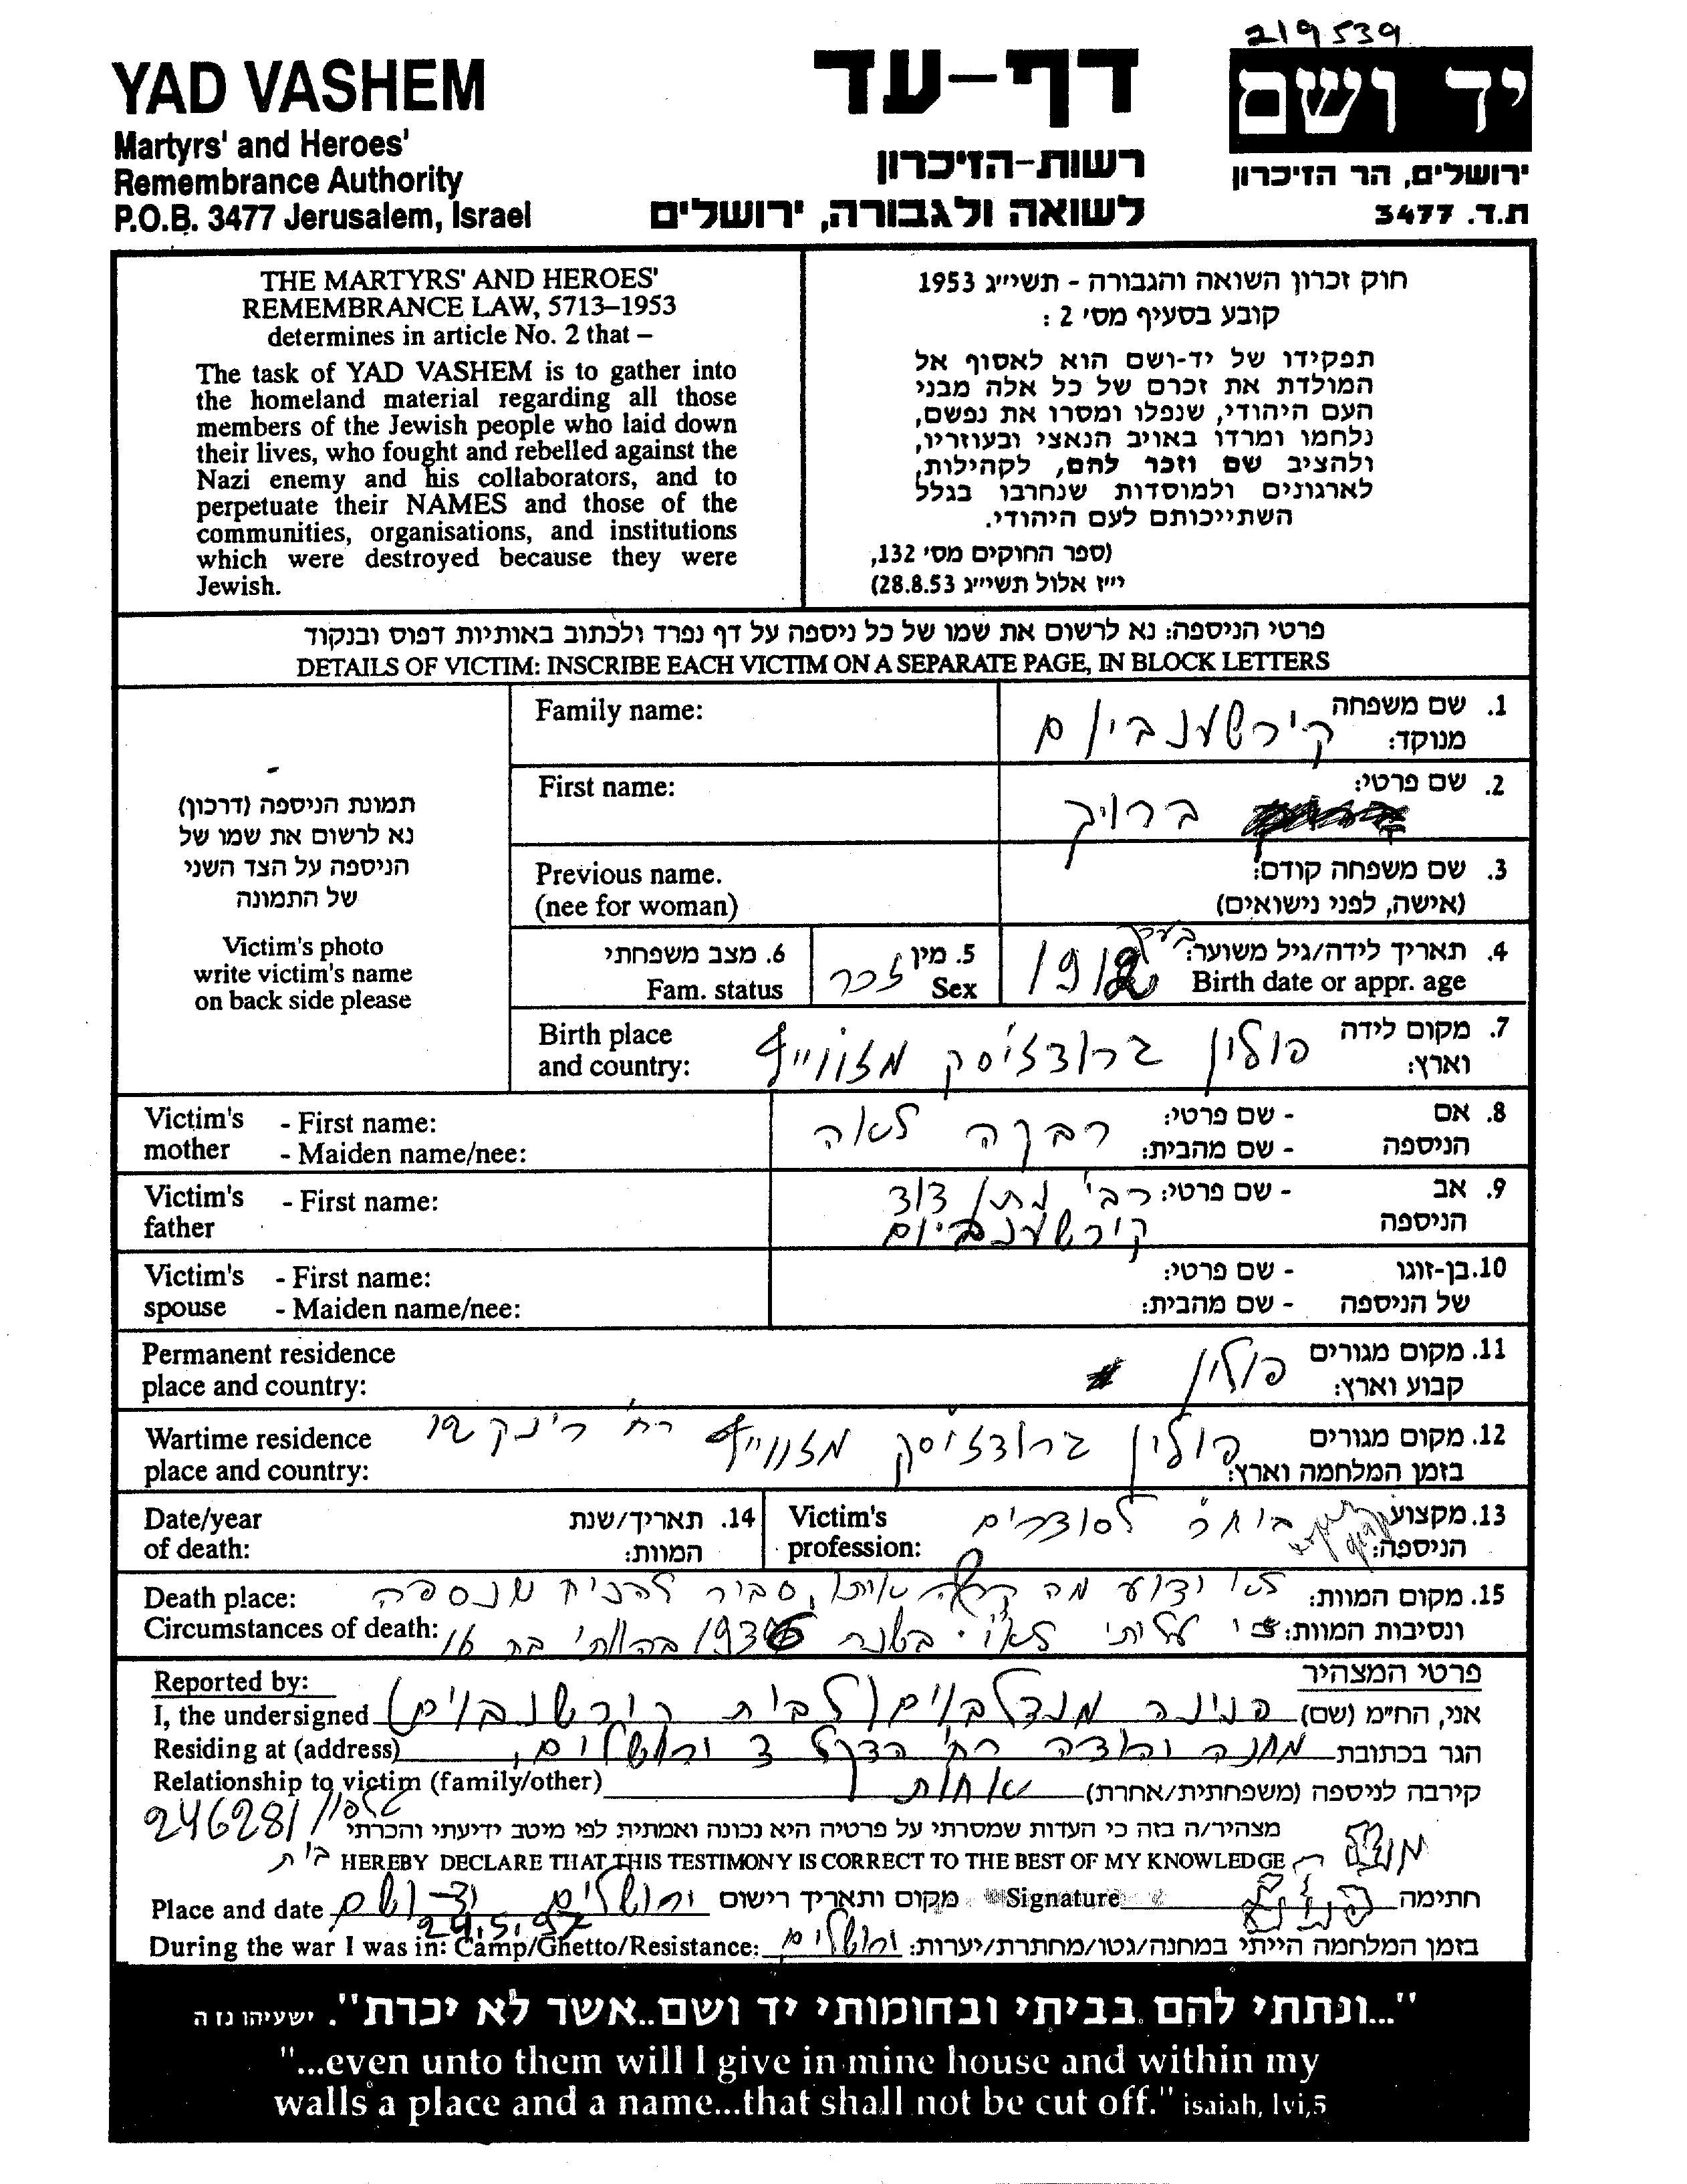 219539
YAD VASHEM
Martyrs' and Heroes'
Remembrance Authority
P.O.B. 3477 Jerusalem, Israel
דף-עד
רשות-הזיכרון
לשואה ולגבורה, ירושלים
יד ושם
ירושלים, הר הזיכרון
ת.ד. 3477
THE MARTYRS' AND HEROES'
REMEMBRANCE LAW, 5713–1953
determines in article No. 2 that –
The task of YAD VASHEM is to gather into
the homeland material regarding all those
members of the Jewish people who laid down
their lives, who fought and rebelled against the
Nazi enemy and his collaborators, and to
perpetuate their NAMES and those of the
communities, organisations, and institutions
which were destroyed because they were
Jewish.
חוק זכרון השואה והגבורה - תשי״ג 1953
קובע בסעיף מס׳ 2 :
תפקידו של יד-ושם הוא לאסוף אל
המולדת את זכרם של כל אלה מבני
העם היהודי, שנפלו ומסרו את נפשם,
נלחמו ומרדו באויב הנאצי ובעוזריו,
ולהציב שם וזכר להם, לקהילות,
לארגונים ולמוסדות שנחרבו בגלל
השתייכותם לעם היהודי.
(ספר החוקים מס׳ 132,
י״ז אלול תשי״ג 28.8.53)
פרטי הניספה: נא לרשום את שמו של כל ניספה על דף נפרד ולכתוב באותיות דפוס ובנקוד
DETAILS OF VICTIM: INSCRIBE EACH VICTIM ON A SEPARATE PAGE, IN BLOCK LETTERS
תמונת הניספה (דרכון)
נא לרשום את שמו של
הניספה על הצד השני
של התמונה
Victim's photo
write victim's name
on back side please
Family name:
1. שם משפחה
מנוקד:
קירשענבוים
First name:
2. שם פרטי:
ברוך
Previous name.
(nee for woman)
3. שם משפחה קודם:
(אישה, לפני נישואים)
6. מצב משפחתי
Fam. status
5. מין
Sex
זכר
4. תאריך לידה/גיל משוער: בערך
Birth date or appr. age
1912
Birth place
and country:
7. מקום לידה
וארץ:
פולין ברודזיסק מזווייץ
Victim's
mother
- First name:
- Maiden name/nee:
8. אם
הניספה
- שם פרטי:
- שם מהבית:
רבקה לאה
Victim's
father
- First name:
9. אב
הניספה
- שם פרטי:
רבי נתן דוד
קירשענבוים
Victim's
spouse
- First name:
- Maiden name/nee:
10. בן-זוגו
של הניספה
- שם פרטי:
- שם מהבית:
Permanent residence
place and country:
11. מקום מגורים
קבוע וארץ:
פולין
Wartime residence
place and country:
12. מקום מגורים
בזמן המלחמה וארץ:
פולין ברודזיסק מזווייץ רח׳ רינקובי
Date/year
of death:
14. תאריך/שנת
המוות:
Victim's
profession:
13. מקצוע
הניספה:
לסודרים
Death place:
Circumstances of death:
15. מקום המוות:
ונסיבות המוות:
לא ידוע מה קרה איתו, סביר להניח שנספה
עליתי לא״י בשנת 1936 בהיותי בת 16
Reported by:
פרטי המצהיר
I, the undersigned
אני, הח״מ (שם)
פנינה מנדלבוים (לבית קירשנבוים)
Residing at (address)
הגר בכתובת
מחנה יהודה רח׳ הדקל 3 ירושלים,
Relationship to victim (family/other)
קירבה לניספה (משפחתית/אחרת)
אחות
טלפון 246281
מצהיר/ה בזה כי העדות שמסרתי על פרטיה היא נכונה ואמתית לפי מיטב ידיעתי והכרתי
I HEREBY DECLARE THAT THIS TESTIMONY IS CORRECT TO THE BEST OF MY KNOWLEDGE
Place and date
ירושלים יד-ושם
24.5.92
מקום ותאריך רישום
Signature
חתימה
During the war I was in: Camp/Ghetto/Resistance:
ירושלים
בזמן המלחמה הייתי במחנה/גטו/מחתרת/יערות:
"...ונתתי להם בביתי ובחומותי יד ושם..אשר לא יכרת". ישעיהו נז ה
"...even unto them will I give in mine house and within my
walls a place and a name...that shall not be cut off." isaiah, lvi,5